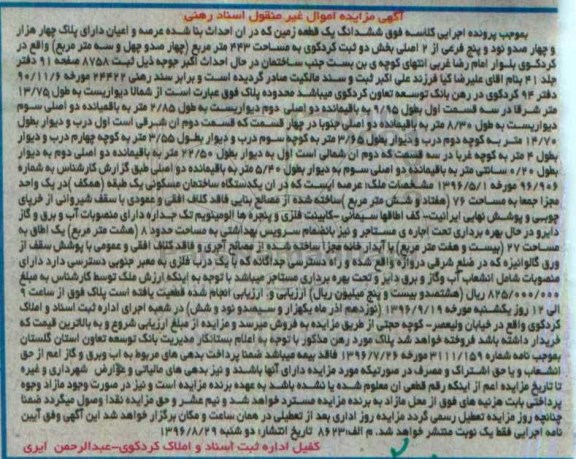 آگهی مزایده اموال غیر منقول اسناد رهنی
بموجب پرونده اجرایی کلاسه فوق ششدانگ یک قطعه زمین که در ان احداث بنا شده عرصه و اعیان دارای پلاک چهار هزار
و چهار صدو نود و پنج فرعی از ۲ اصلی بخش دو ثبت کردکوی به مساحت ۴۴۳ متر مربع (چهار صدو چهل و سه متر مربع) واقع در
کردکوی بلوار امام رضا غربی انتهای کوچه ی بن بست جنب ساختمان در حال احداث اکبر جوجه ذیل ثبت ۸۷۵۸ صفحه ۹۱ دفتر
جلد ۴۱ بنام اقای علیرضا کیا فرزند علی اکبر ثبت و سند مالکیت صادر گردیده است و برابر سند رهنی ۲۴۴۲۲ مورخه ۹۰/۱۱/۶
دفتر ۹۴ کردکوی در رهن بانک توسعه تعاون کردکوی میباشد محدوده پلاک فوق عبارت است از شمالا دیواریست به طول ۱۳/۷۵
متر شرقا در سه قسمت اول بطول ۹/۹۵ به باقیمانده دو اصلی دوم دیواریست به طول ۲/۸۵ متر به باقمیانده دو اصلی سوم
دیواریست به طول ۸/۳۰ متر به باقیمانده دو اصلی جنوبا در چهار قسمت که قسمت دوم ان شرقی است اول درب و دیوار بطول
۱۴/۷۰ متر به کوچه دوم درب و دیوار بطول ۳/۶۵ متر به کوچه سوم درب و دیوار بطول ۳/۵۵ متر به کوچه چهارم درب و دیوار
بطول ۴ متر به کوچه غربا در سه قسمت که دوم ان شمالی است اول به دیوار بطول ۲۲/۵۰ متر به باقیمانده دو اصلی دوم به دیوار
بطول ۰/۲۰ سانتی متر به باقیمانده دو اصلی سوم به دیوار بطول ۵/۴۰ متر به باقیمانده دو اصلی طبق گزارش کارشناس به شماره
۹۶/۹۰۶ مورخه ۱۳۹۶/۵/۱ مشخصات ملک: عرصه ایست که در ان یکدستگاه ساختمان مسکونی یک طبقه (همکف) در یک واحد
مجزا جمعا به مساحت ۷۶ (هفتاد و شش متر مربع) ساخته شده از مصالح بنایی فاقد کلاف افقی و عمودی با سقف شیروانی از خرپای
چوبی و پوشش نهایی ایرانیت- کف اطاقها سیمانی -کابینت فلزی و پنجره ها الومینیوم تک جداره دارای منصوبات آب و برق و گاز
دایرو در حال بهره برداری تحت اجاره ی مستاجر و نیز بانضمام سرویس بهداشتی به مساحت حدود ۸ (هشت متر مربع) یک اطاق به
مساحت ۲۷ (بیست و هفت متر مربع) با آبدار خانه مجزا ساخته شده از مصالح آجری و فاقد کلاف افقی و عمومی با پوشش سقف از
ورق گالوانیزه که در ضلع شرقی دروازه واقع شده و راه دسترسی جداگانه که با یک درب فلزی به معبر جنوبی دسترسی دارد دارای
منصوبات شامل انشعاب آب وگاز و برق دایر و تحت بهره برداری مستاجر میباشد با توجه به اینکه ارزش ملک توسط کارشناس به مبلغ
۸۲۵/۰۰۰/۰۰۰ ریال (هشتصدو بیست و پنج میلیون ریال) ارزیابی و. ارزیابی انجام شده قطعیت یافته است پلاک فوق از ساعت ۹
الی ۱۲ روز یکشنبه مورخه ۱۳۹۶/۹/۱۹ (نوزدهم اذر ماه یکهزار و سیصدو نود و شش) در شعبه اجرای اداره ثبت اسناد و املاک
کردکوی واقع در خیابان ولیعصر- کوچه حجتی از طریق مزایده به فروش میرسد و مزایده از مبلغ ارزیابی شروع و به بالاترین قیمت که
خریدار داشته باشد فروخته خواهد شد پلاک مورد رهن مذکور با توجه به اعلام بستانکار مدیریت بانک توسعه تعاون استان گلستان
بموجب نامه شماره ۳۱۱۱/۱۵۹ مورخه ۱۳۹۶/۷/۲۶ فاقد بیمه میباشد ضمنا پرداخت بدهی های مربوط به اب وبرق و گاز اعم از حق
انشعاب و یا حق اشتراک و مصرف در صورتیکه مورد مزایده دارای آنها باشند و نیز بدهی های مالیاتی و عوارض شهرداری و غیره
تا تاریخ مزایده اعم از اینکه رقم قطعی ان معلوم شده یا نشده باشد به عهده برنده مزایده است و نیز در صورت وجود مازاد وجوه
پرداختی بابت هزینه های فوق از محل مازاد به برنده مزایده مسترد خواهد شد و نیم عشر و حق مزایده نقدا وصول میگردد ضمنا
چنانچه روز مزایده تعطیل رسمی گردد مزایده روز اداری بعد از تعطیلی در همان ساعت و مکان برگزار خواهد شد این آگهی وفق آیین
نامه اجرایی فقط یک نوبت منتشر خواهد شد. م الف:۸۶۲۳ تاریخ انتشار: دو شنبه ۱۳۹۶/۸/۲۹
کفیل اداره ثبت اسناد و املاک کردکوی-عبدالرحمن آیری